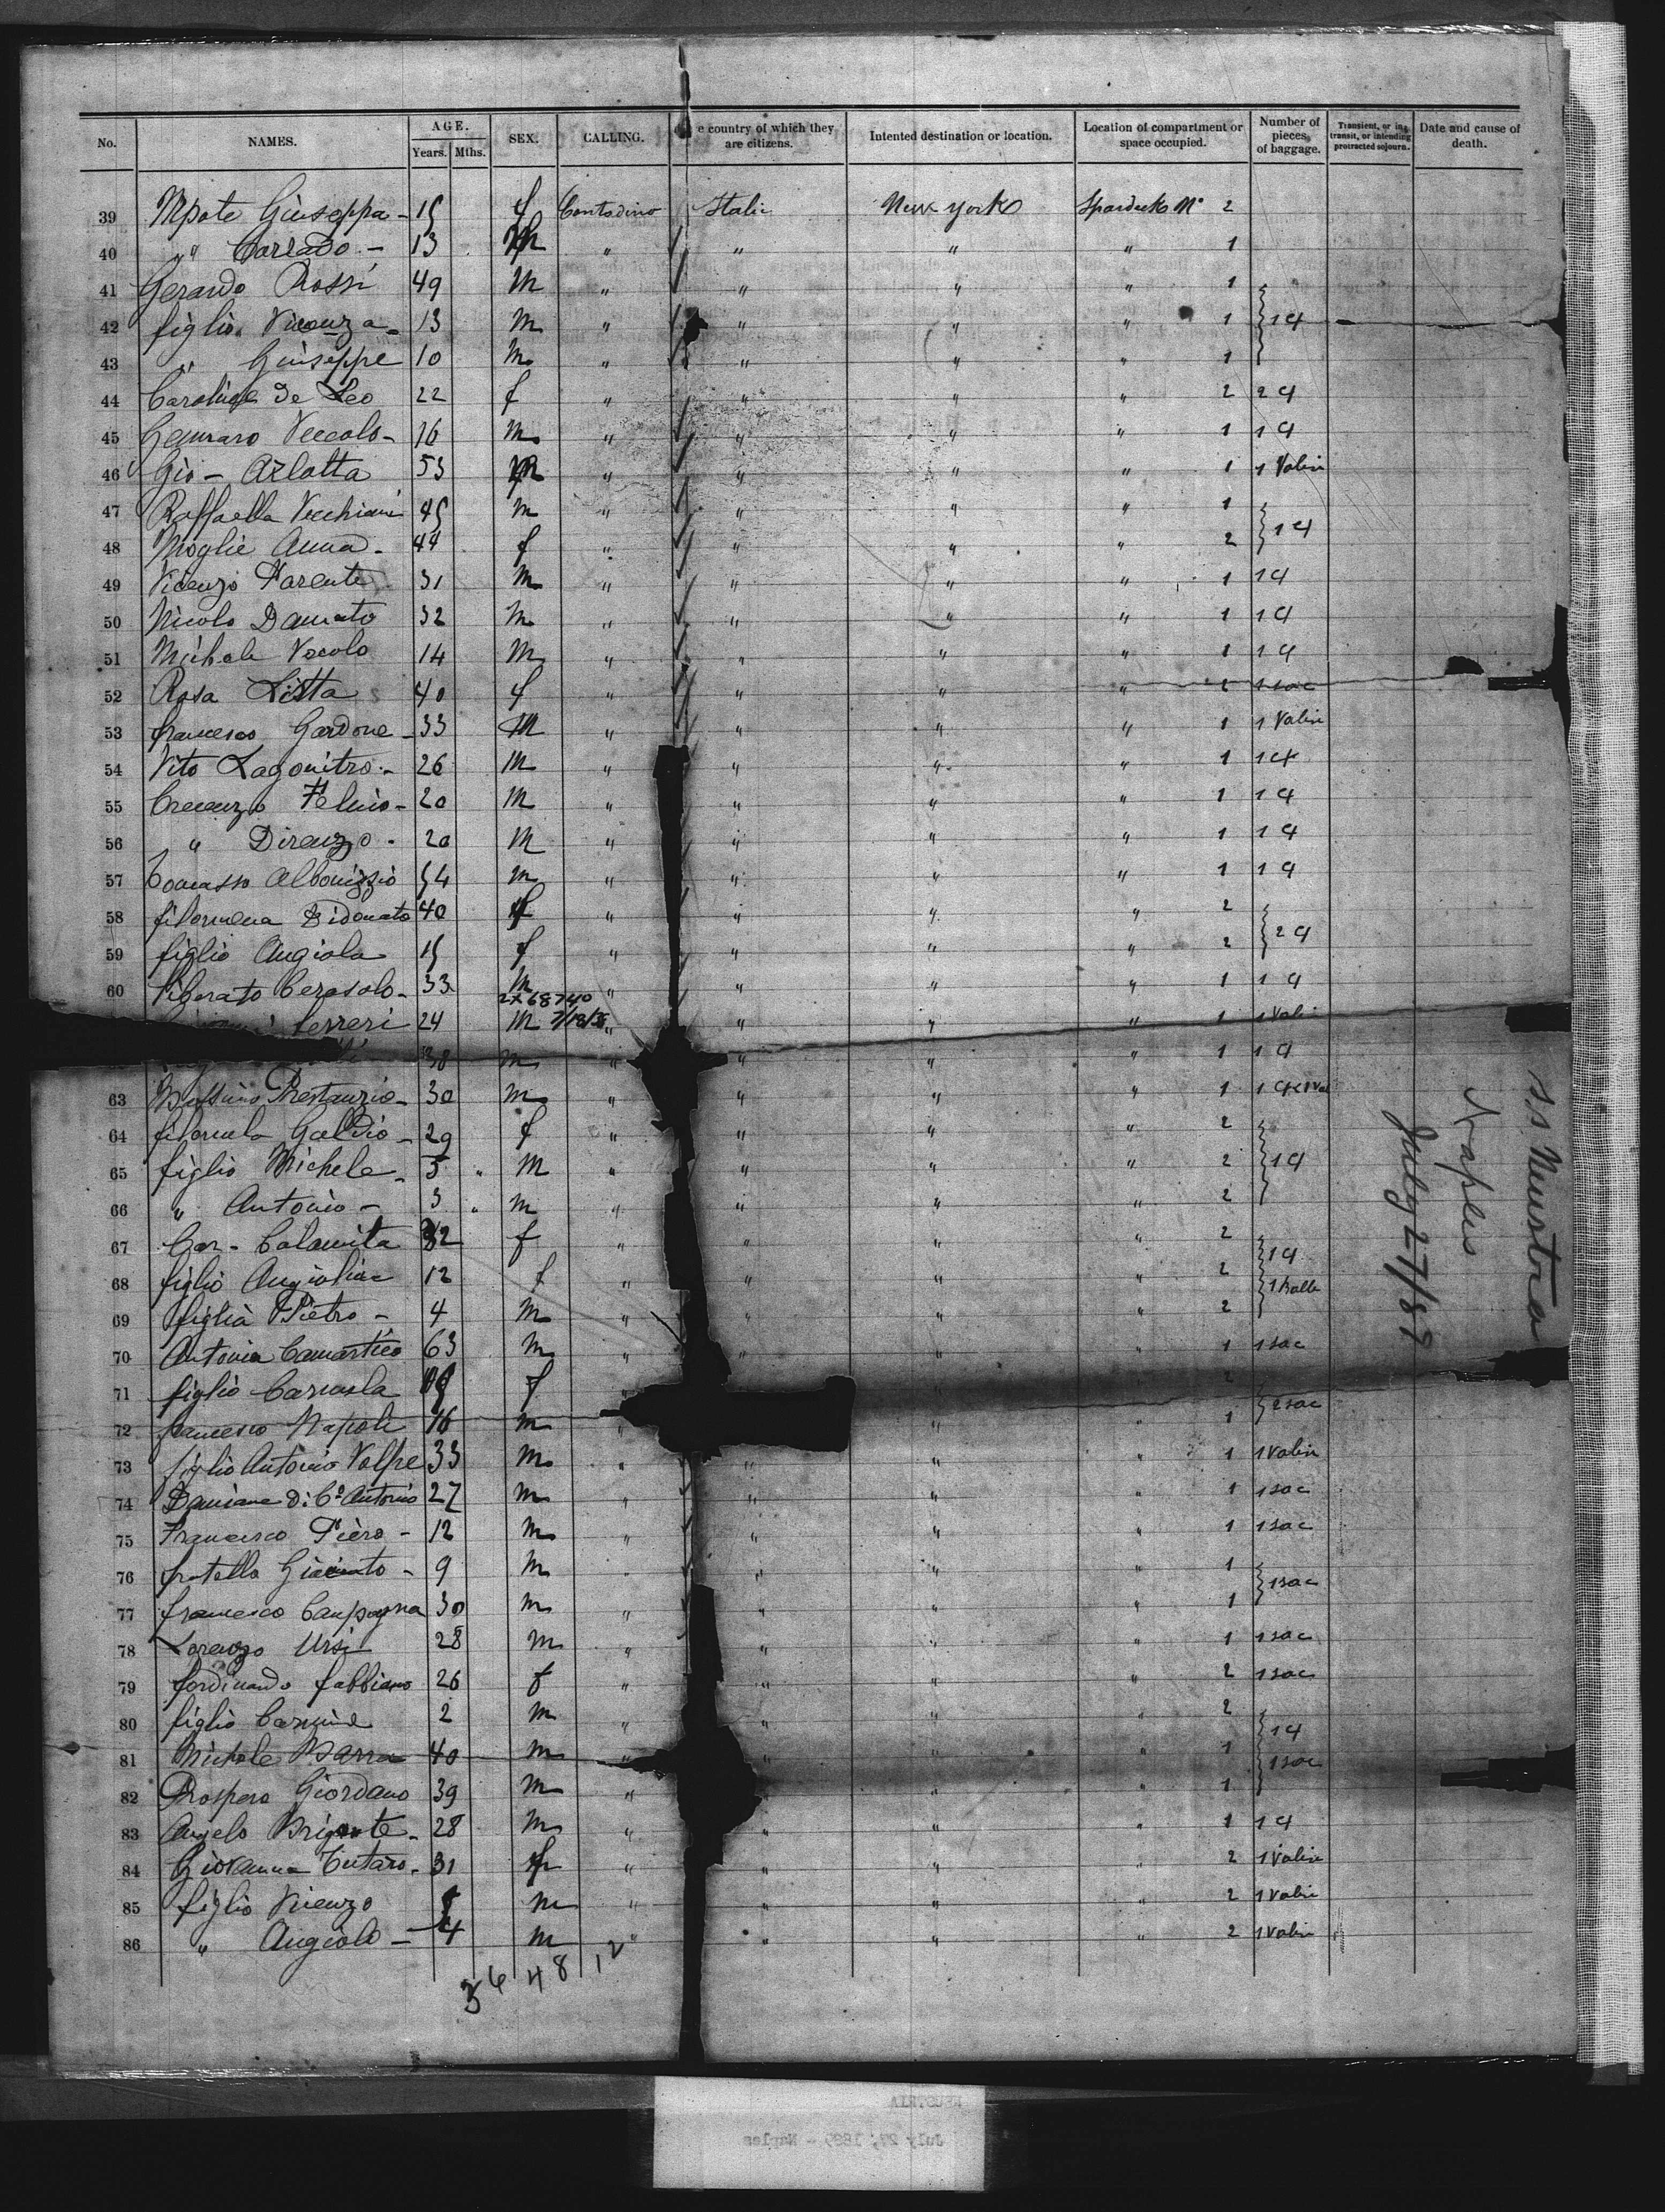 No. NAMES. AGE. Years. Mths. SEX. CALLING. e country of which they are citizens. Intented destination or location. Location of compartment or space occupied. Number of pieces of baggage. Transient, or in transit, or intending protracted sojourn. Date and cause of death.
39 Giuseppa - 15 f Contadino Italie New York Spardeck No 2
40 " Corrado - 13 M " " " " 1
41 Gerardo Rossi 49 M " " " " 1
42 figlio Vicenza - 13 M " " " " 1 1 C
43 " Giuseppe 10 M " " " " 1
44 Carolina De Leo 22 f " " " " 2 2 C
45 Gennaro 16 M " " " " 1 1 C
46 Gio - Arlotta 53 M " " " " 1 1 Valise
47 Raffaella Vecchiani 45 M " " " " 1
48 Moglie Anna - 44 f " " " " 2 1 C
49 Vicenzo Parente 31 M " " " " 1 1 C
50 Nicolo Damato 32 M " " " " 1 1 C
51 Michele 14 M " " " " 1 1 C
52 Rosa Litta 40 f " " " " 2 1 sac
53 francesco Gardone - 33 M " " " " 1 1 Valise
54 Vito Lagonitro - 26 M " " " " 1 1 C
55 Crecenzo - 20 M " " " " 1 1 C
56 " Direnzo - 20 M " " " " 1 1 C
57 Tomasso 54 M " " " " 1 1 C
58 filomena Didonato 40 f " " " " 2
59 figlio Angiola 15 f " " " " 2 2 C
60 Liberato Cerasolo - 33 M " " " " 1 1 C
2X68740
ferreri 24 M 7/18/38 " " " " 1 1 Vali
38 M " " " " 1 1 C
63 30 M " " " " 1 1 C
64 Galdio - 29 f " " " " 2
65 figlio Michele - 5 " M " " " " 2 1 C
66 " Antonio - 3 " M " " " " 2
67 Car - Calamita 32 f " " " " 2
68 figlio Angiolina 12 f " " " " 2 1 C 1 balle
69 figlia Pietro - 4 M " " " " 2
70 Antonia 63 M " " " " 1 1 sac
71 figlio Carmela f " 2
72 francesco Napoli 16 M " " " 1 2 sac
73 figlio Antonio Volpe 33 M " " " " 1 1 Valise
74 Damiano Di Co Antonio 27 M " " " " 1 1 sac
75 Francesco Piero - 12 M " " " " 1 1 sac
76 fratello Giacinto - 9 M " " " " 1
77 francesco Campagna 30 M " " " " 1 1 sac
78 Lorenzo Ursi 28 M " " " " 1 1 sac
79 ferdinando fabbiano 26 f " " " " 2 1 sac
80 figlio Carmine 2 M " " " " 2
81 Michele Barra 40 M " " " " 1 1 C 1 sac
82 Prospero Giordano 39 M " " " " 1
83 Angelo Brigante - 28 M " " " " 1 1 C
84 Giovanna Tutaro - 31 f " " " " 2 1 Valise
85 figlio Vicenzo M " " " " 2 1 Valise
86 " Angiolo - 4 M " " " " 2 1 Valise
36 48 12
S.S Neustria
Naples
July 27/89
NEUSTRIA
July 27, 1889 - Naples